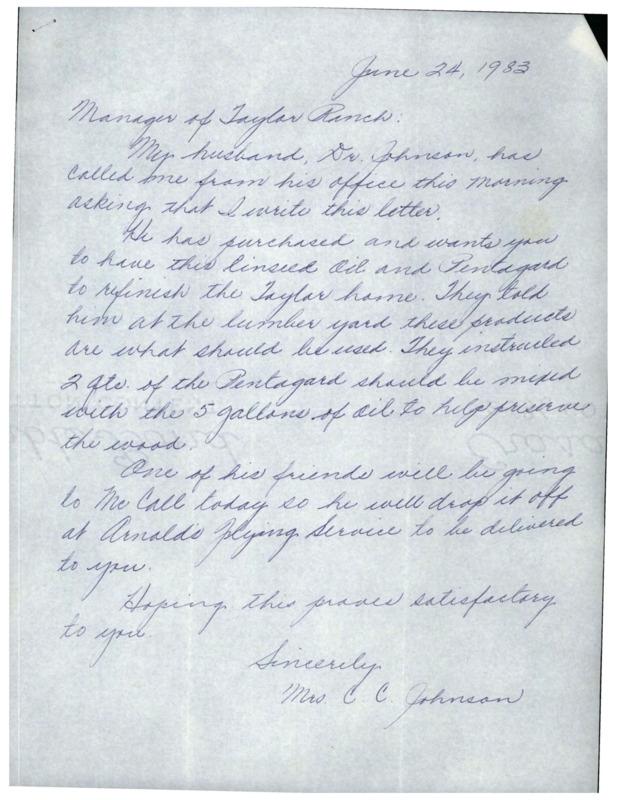 June 24, 1983
Manager of Taylor Ranch:
My husband, Dr. Johnson, has
called me from his office this morning
asking that I write this letter.
He has purchased and wants you
to have this linseed Oil and Pentagard
to refinish the Taylor home. They told
him at the lumber yard these products
are what should be used. They instructed
2 qts. of the Pentagard should be mixed
with the 5 gallons of oil to help preserve
the wood.
One of his friends will be going
to Mc Call today so he will drop it off
at Arnolds Flying Service to be delivered
to you.
Hoping this proves satisfactory
to you.
Sincerely
Mrs. C. C. Johnson